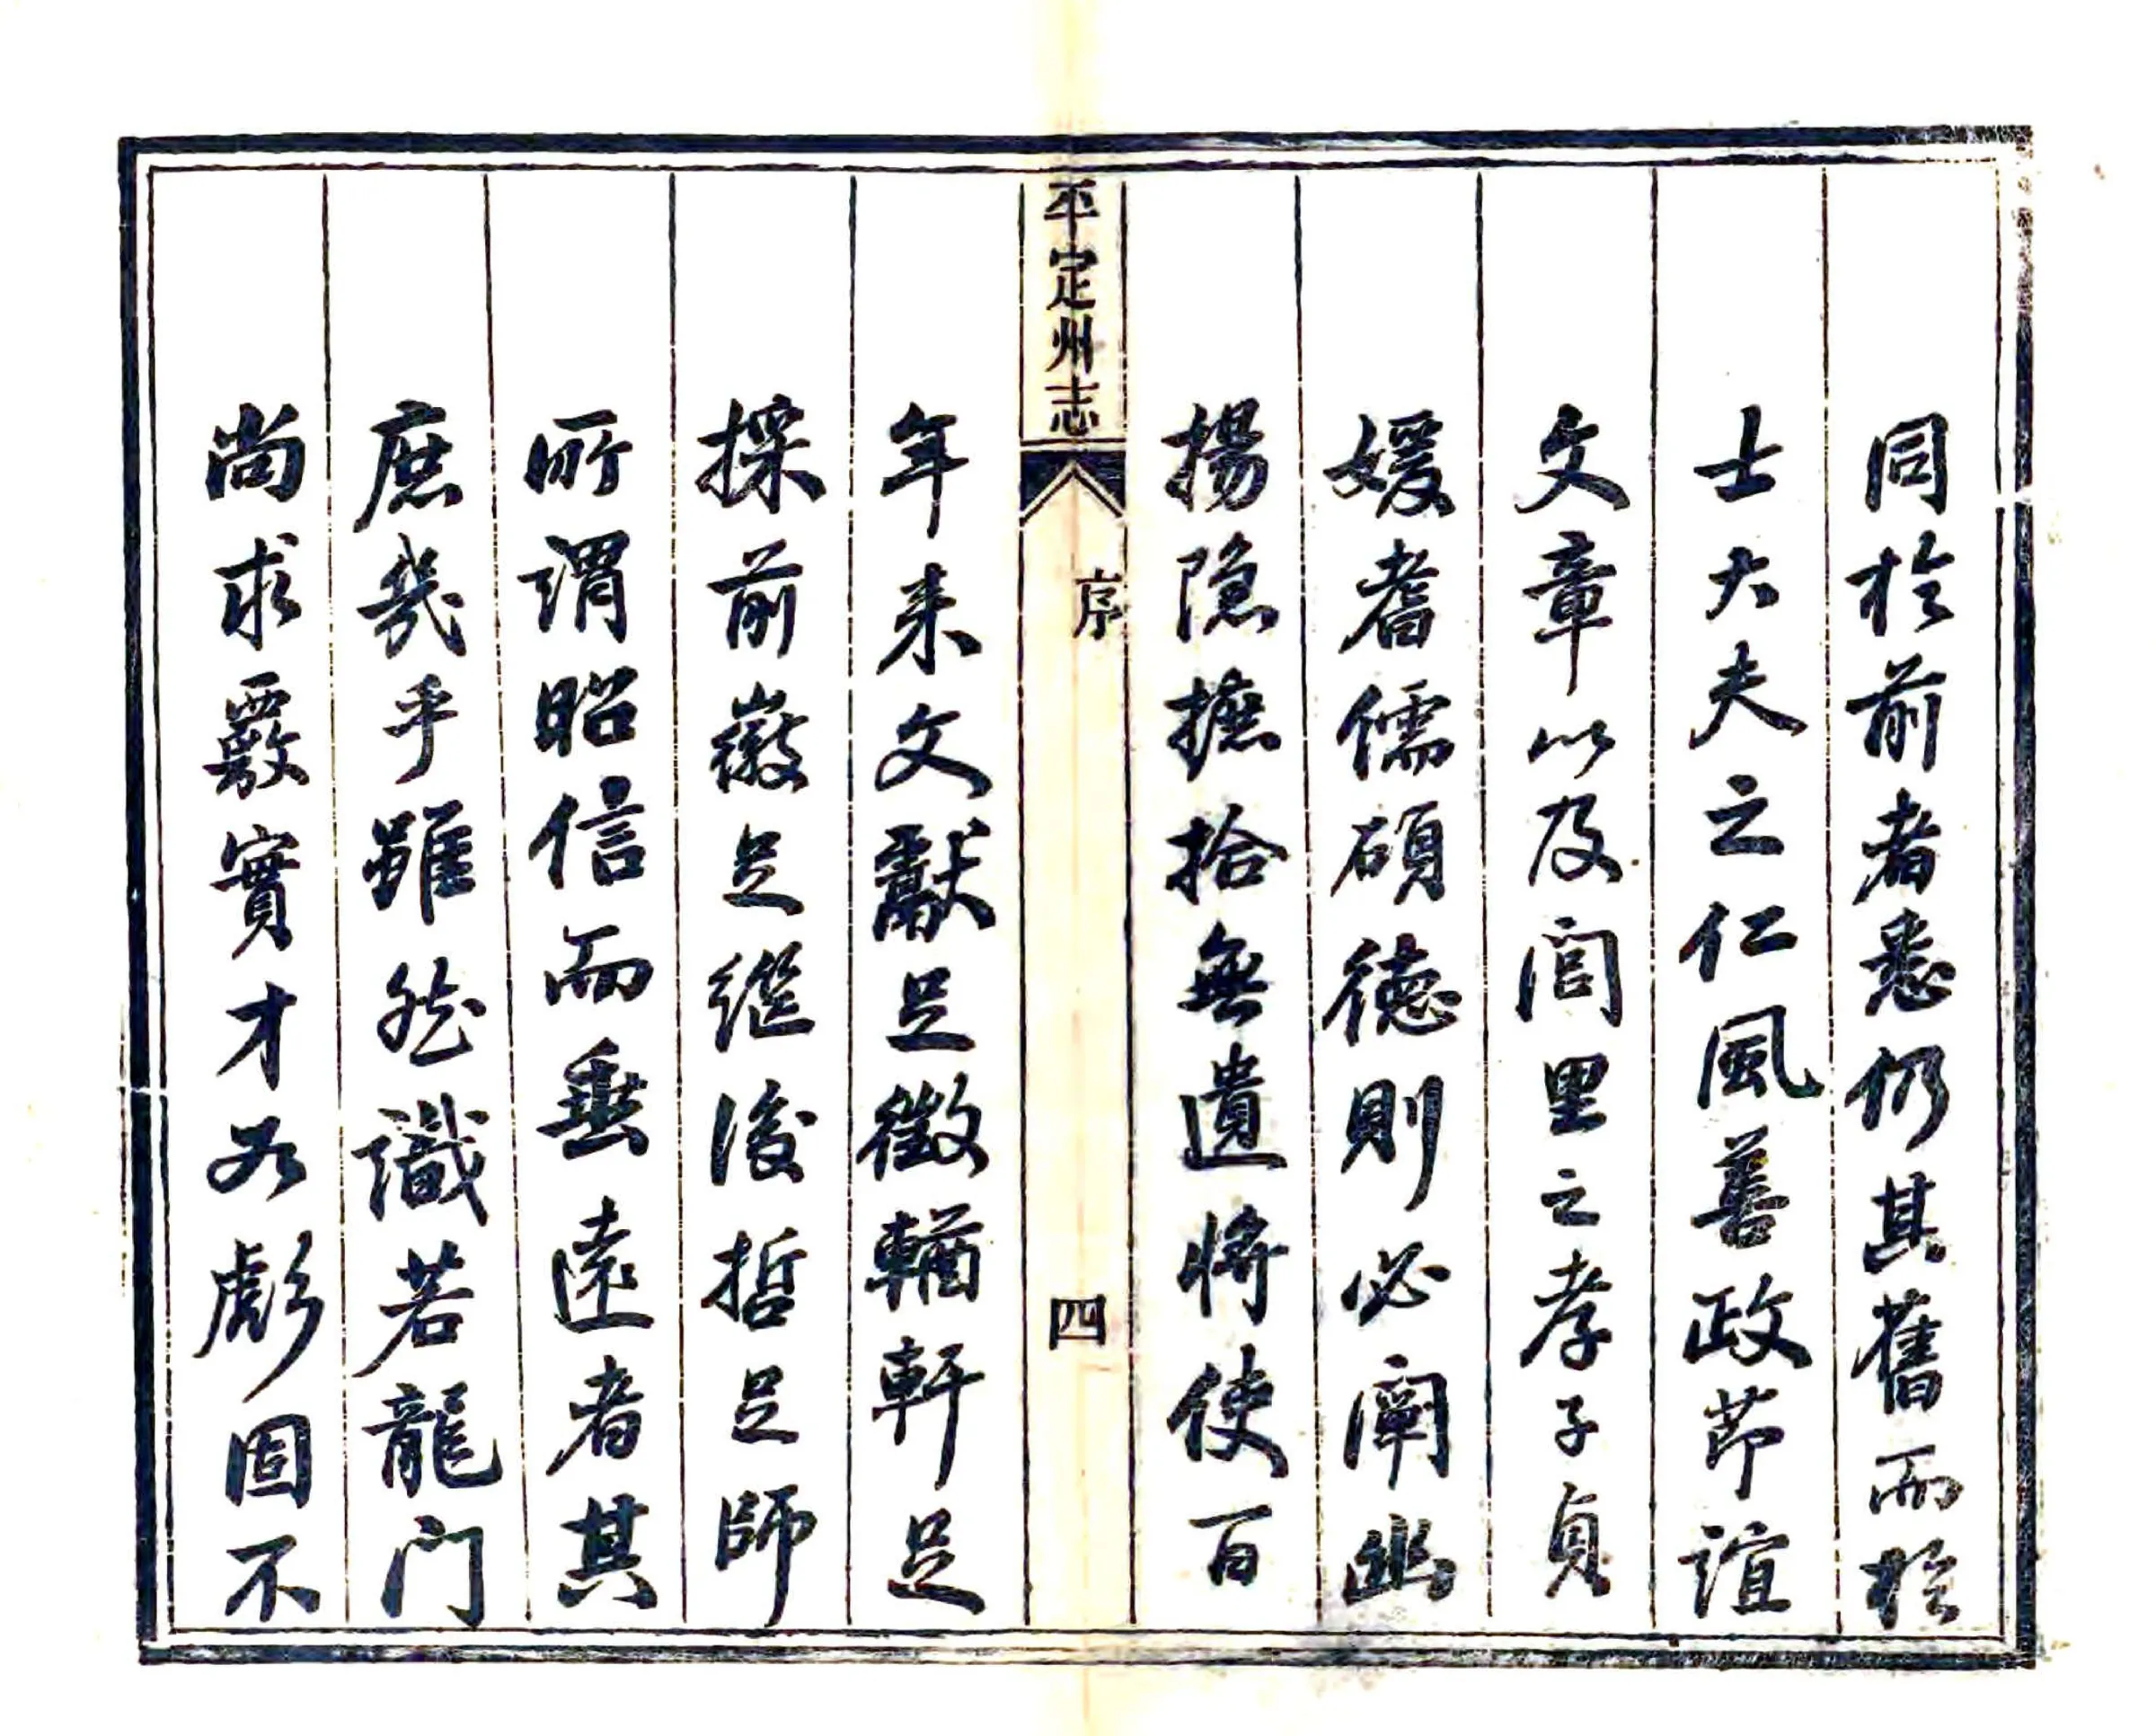 同於前者悉仍其舊而於
士大夫之仁風善政節誼
文章以及閭里之孝子貞
媛耆儒碩德則必闡幽
揚隱摭拾無遺將使百
平定州志
序
四
年来文獻足徵輶軒足
採前徽足繼後哲足師
所謂昭信而垂遠者其
庶幾乎雖然識若龍门
尚求覈實才如彪固不